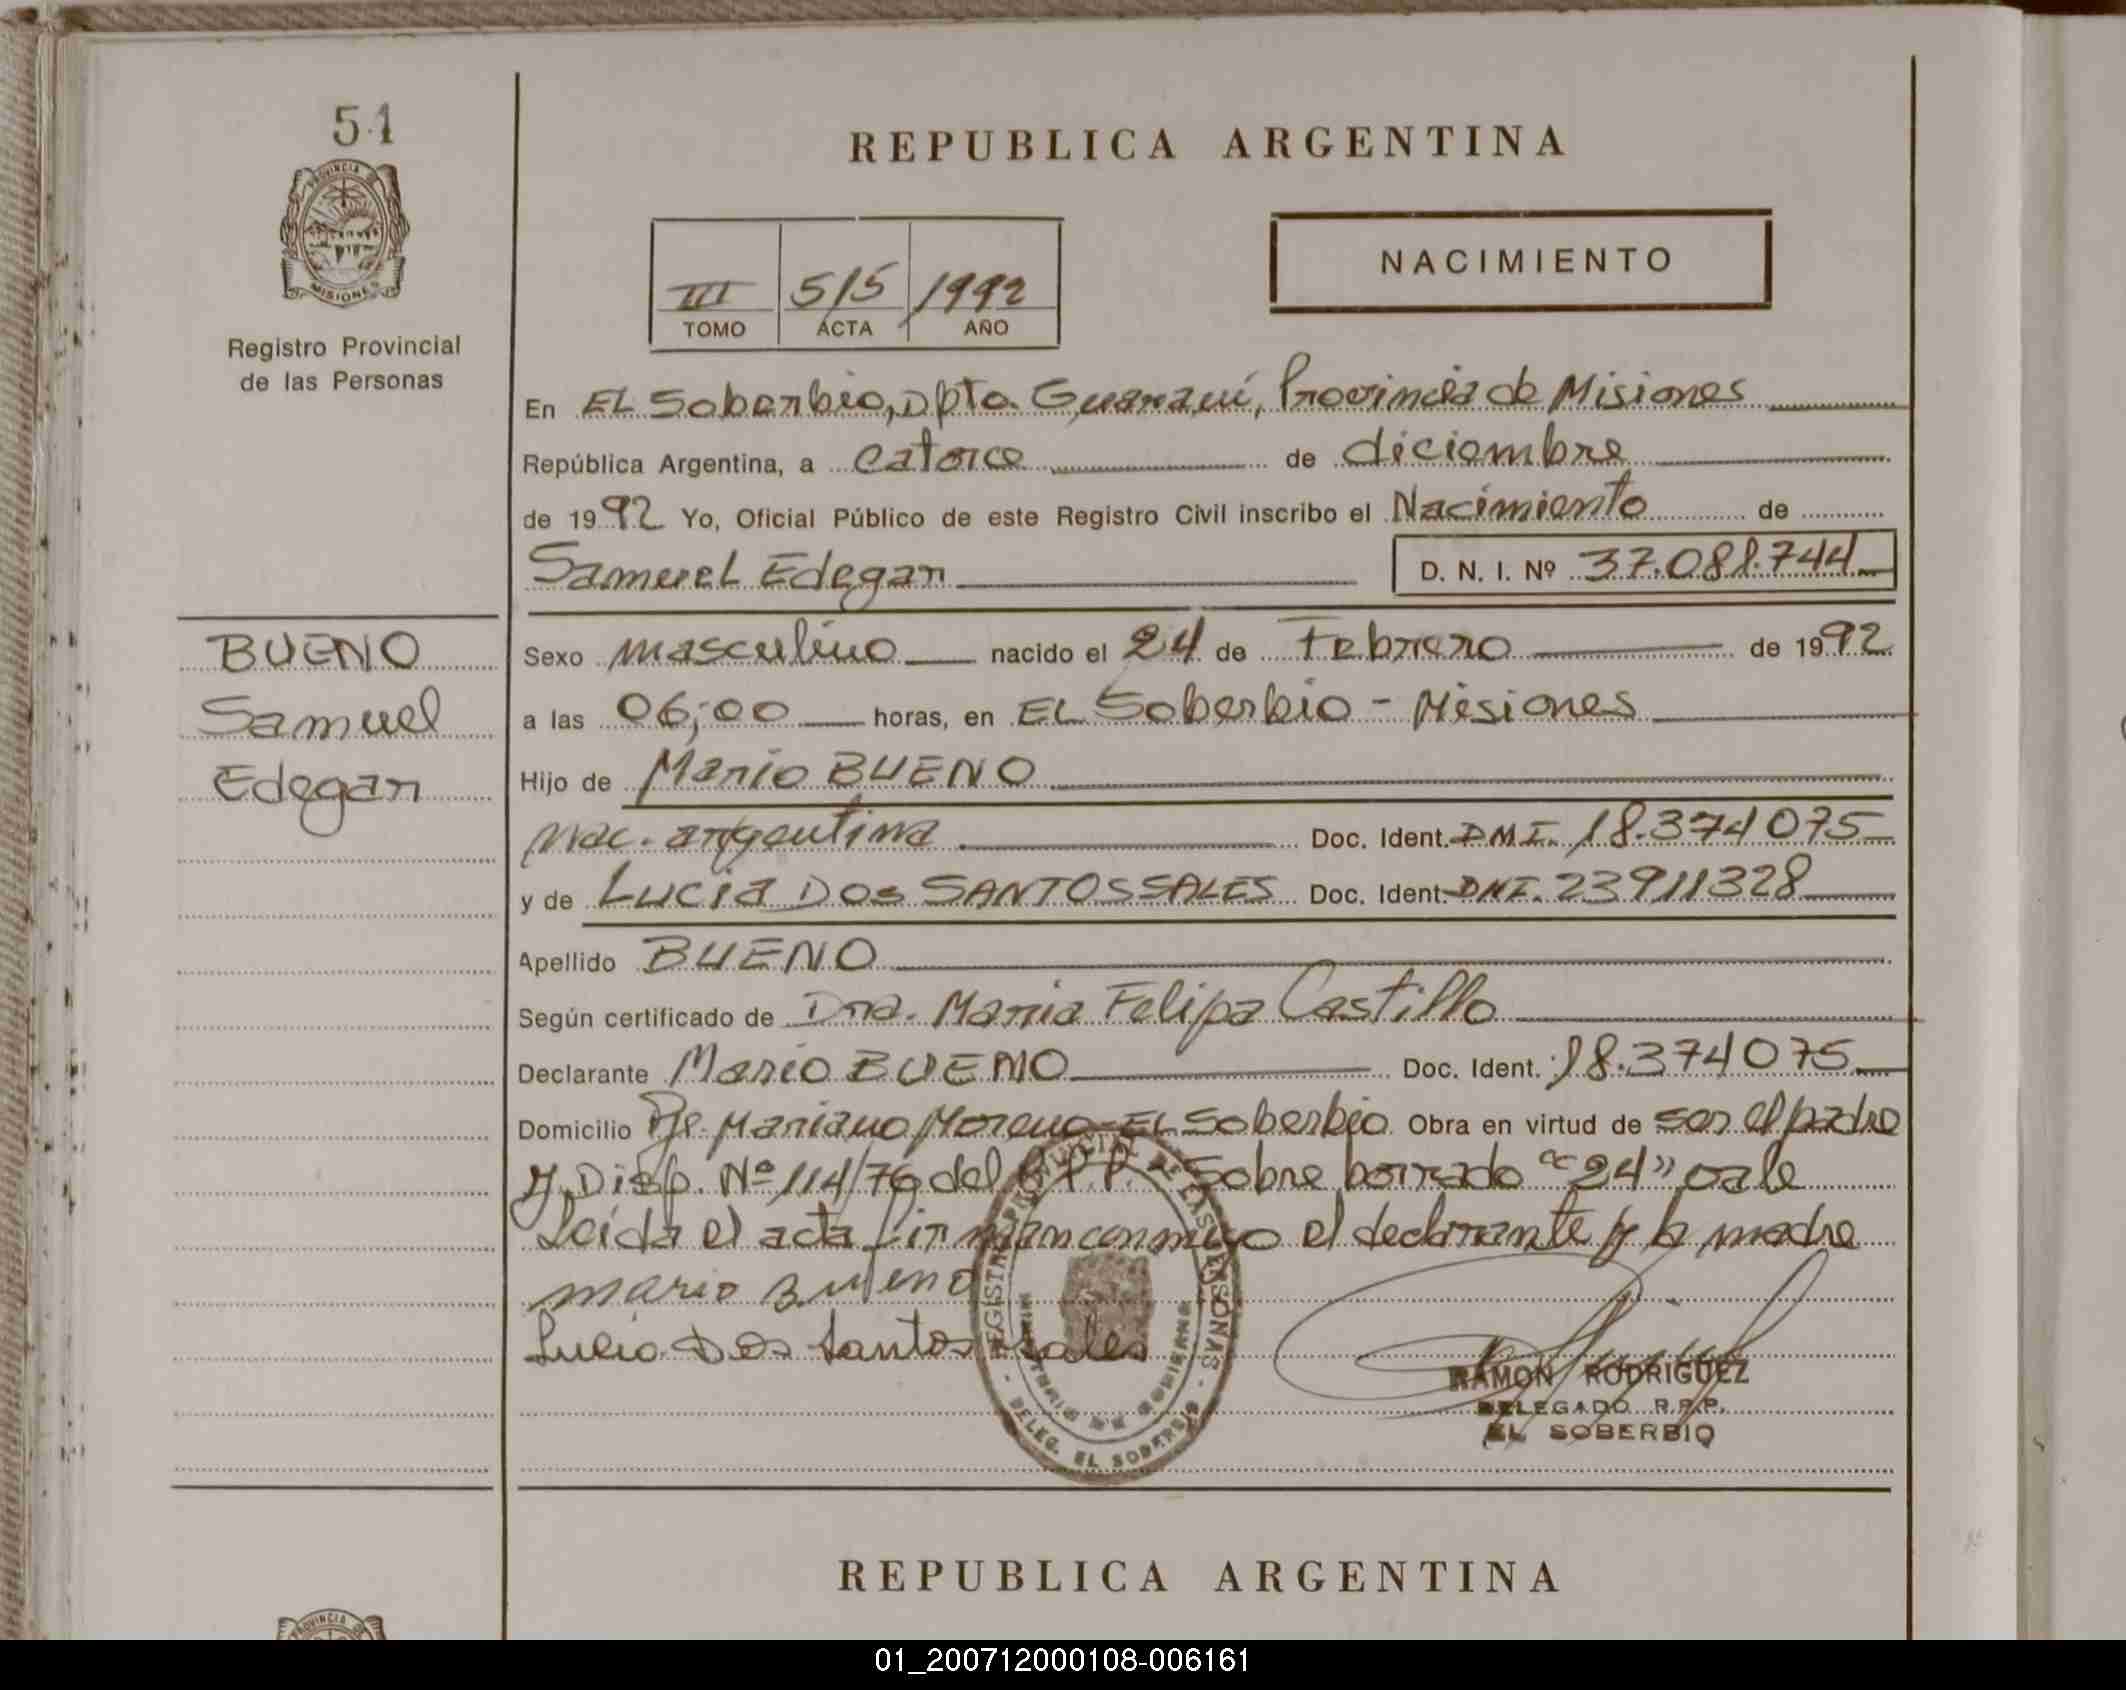 51
PROVINCIA DE
MISIONES
Registro Provincial
de las Personas
REPUBLICA ARGENTINA
III 515 1992
TOMO ACTA AÑO
NACIMIENTO
En EL Soberbio, Dpto. Guaraní, Provincia de Misiones
República Argentina, a catorce de diciembre
de 1992 Yo, Oficial Público de este Registro Civil inscribo el Nacimiento de
Samuel Edegar D. N. I. Nº 37.081.744
BUENO
Samuel
Edegar
Sexo masculino nacido el 24 de Febrero de 1992
a las 06,00 horas, en EL Soberbio - Misiones
Hijo de Mario BUENO
nac. argentina Doc. Ident. DNI. 18.374075
y de Lucia DOS SANTOS SALES Doc. Ident. DNI. 23911328
Apellido BUENO
Según certificado de Dra. Maria Felipa Castillo
Declarante Mario BUENO Doc. Ident. 18.374075
Domicilio Pje. Mariano Moreno-EL Soberbio Obra en virtud de ser el padre
y Disp. Nº 114/76 del R.P.P. - Sobre borrado "24" vale
Leida el acta firman conmigo el declarante y la madre
mario Bueno
Lucia Dos Santos Sales
REGISTRO PROVINCIAL DE LAS PERSONAS
- DELEG. EL SOBERBIO -
RAMON RODRIGUEZ
DELEGADO R.P.P.
EL SOBERBIO
REPUBLICA ARGENTINA
PROVINCIA DE
01_200712000108-006161